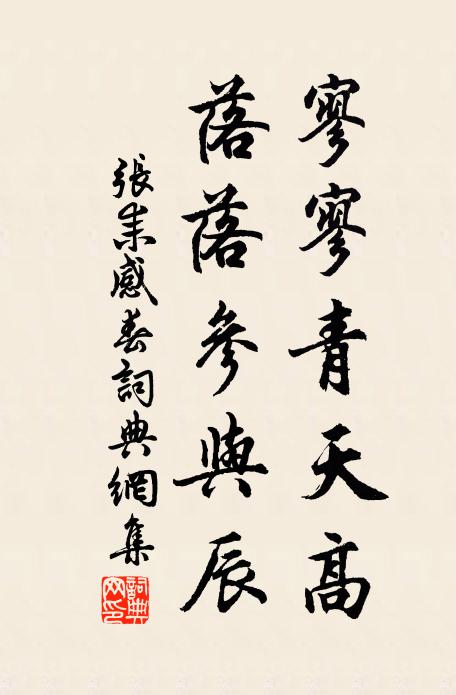 寥寥青天高
落落參與辰
張耒感春詞典網集
詞典網印